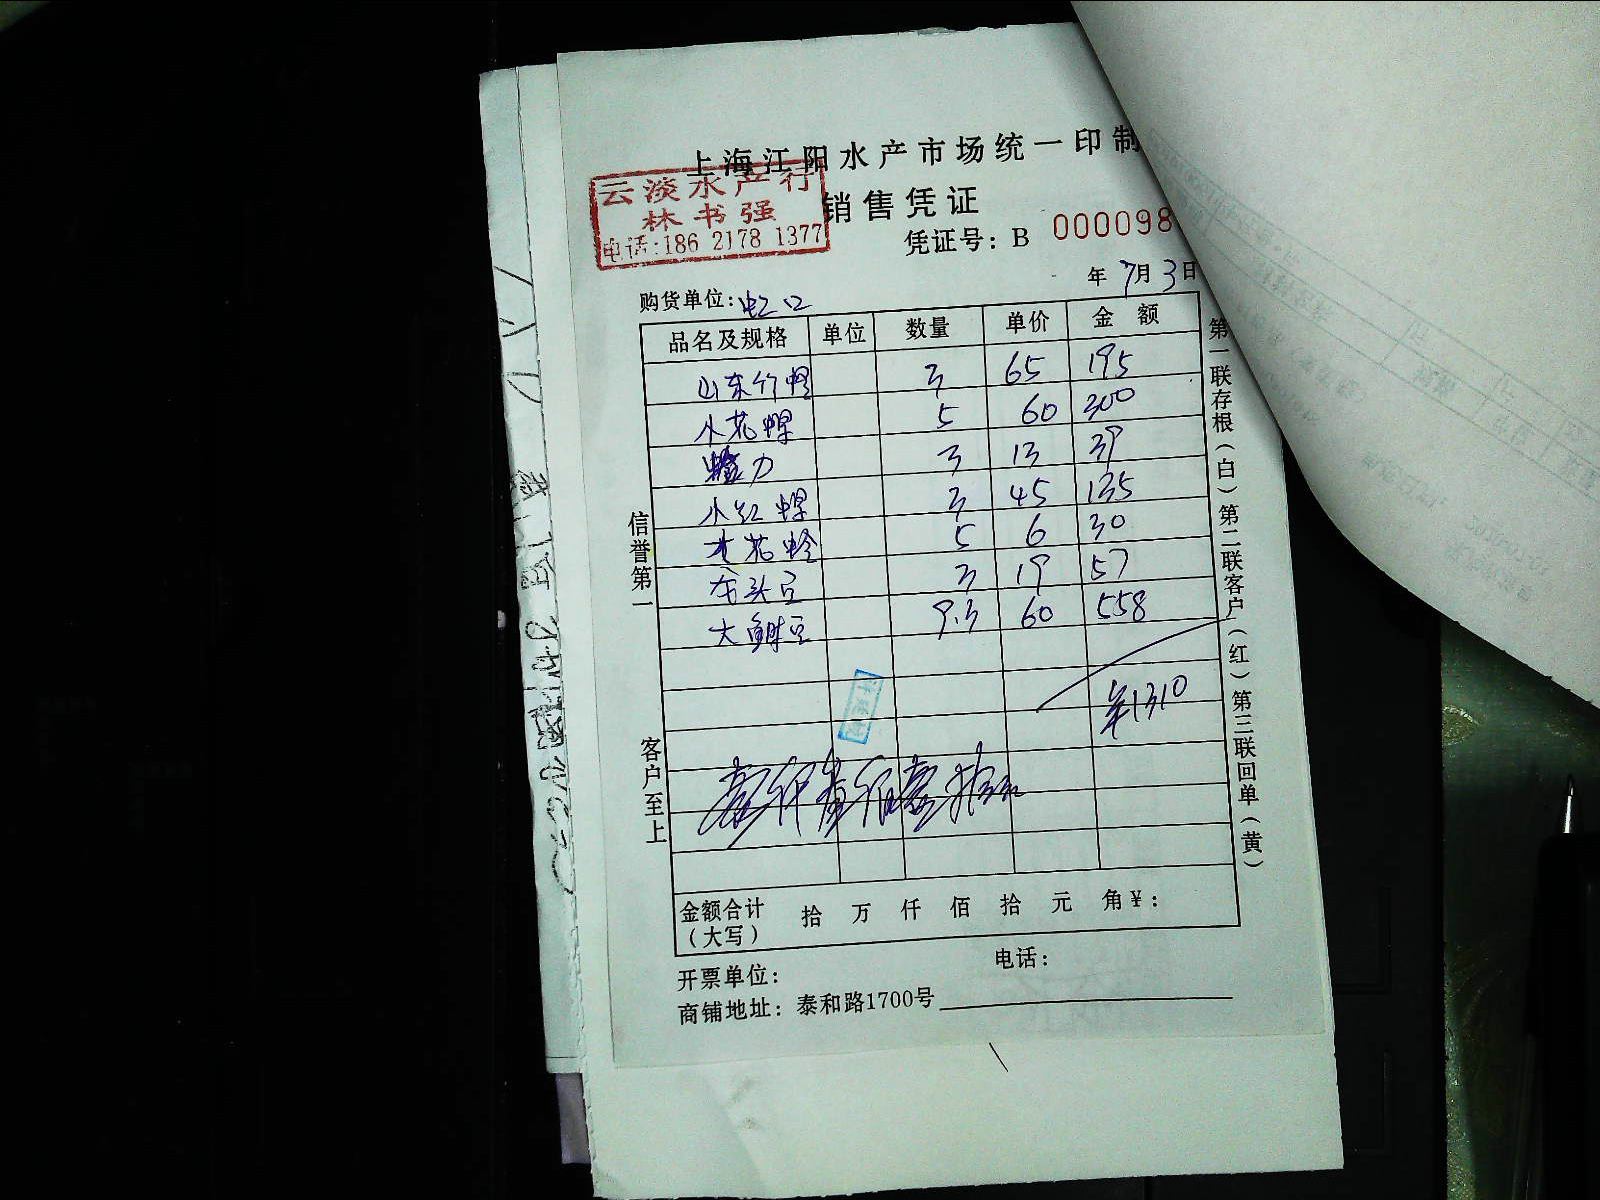 上海江阳水产市场统一印制
云淡水产行
林书强
电话:186 2178 1377
销售凭证
凭证号: B 000098
年 7月3日
购货单位: 虹口
品名及规格 单位 数量 单价 金额
山东竹蛏 3 65 195
小花螺 5 60 300
3 13 39
小红螺 3 45 135
花蛤 5 6 30
3 19 57
大 9.3 60 558
¥1310
信誉第一
客户至上
第一联存根(白)第二联客户(红)第三联回单(黄)
金额合计 拾 万 仟 佰 拾 元 角¥:
(大写)
开票单位: 电话:
商铺地址: 泰和路1700号